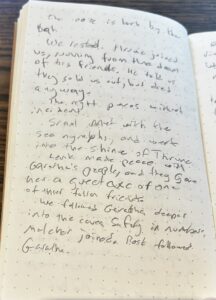 The rose is back by the
Bath.
We rested. Horae joined
us, running from the death
of his friends. He told us
they sold us out, but died
anyways.
The night passes without
incident.
Senal met with the
sea nymphs, and went
into the shrine of Thrune
Lenk made peace with
Garatha's people, and they gave
her a great axe of one
of their fallen friends
We followed Garatha deeper
into the caves. Safety in numbers.
Melchor joined. Rost followed
Garatha.